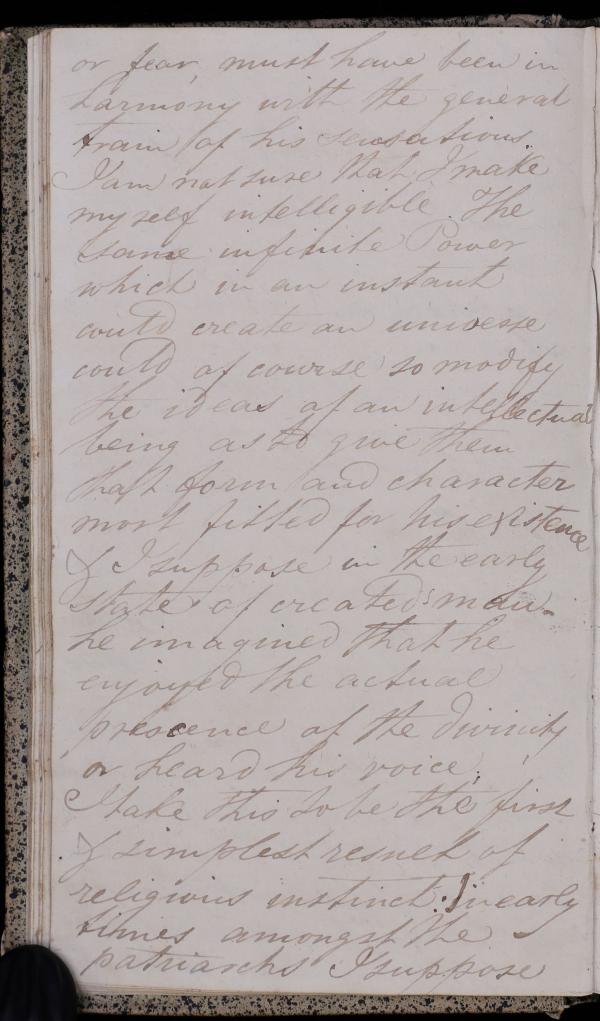 or fear, must have been in
harmony with the general
train of his sensations.
I am not sure that I make
myself intelligible. The
same infinite Power
which in an instant
could create an universe
could of course so modify
the ideas of an intellectual
being as to give them
that form and character
most fitted for his existence
& I suppose in the early
state of created man
he imagined that he
enjoyed the actual
prescence of the divinity
or heard his voice;
I take this to be the first
& simplest result of
religious instinct. In early
times amongst the
patriarchs I suppose